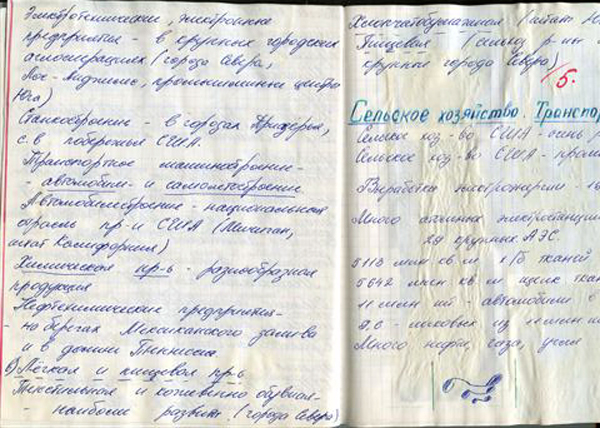 Электротехнические, электронные
предприятия - в крупных городских
агломерациях (города Севера,
Лос-Анджелес, промышленные центры
Юга)
Станкостроение - в городах Приозёрья,
с.в побережья США.
Транспортное машиностроение -
- автомобиле- и самолётостроение
Автомобилестроение - национальная
отрасль пр-и США (Мичиган,
штат Калифорния)
Химическая пр-ь - разнообразная
продукция
Нефтехимические предприятия -
- на берегах Мексиканского залива
и в долине Теннесси
в) Лёгкая и пищевая пр-ь
Текстильная и кожевенно обувная -
- наиболее развит. (города Севера)
Хлопчатобумажная (штат
Пищевая (сельск р-ны и
крупные города Севера)
5.
Сельское хозяйство. Транспор
Сельское хоз-во США - очень
Сельское хоз-во США -
Выработка электроэнергии -
Много атомных электростанций
крупных АЭС.
5118 млн кв. м х/б тканей
5642 млн. кв. м шелк. ткан
11 млн шт - автомобили в
легковых из 11 млн шт
Много нефти, газа, угля